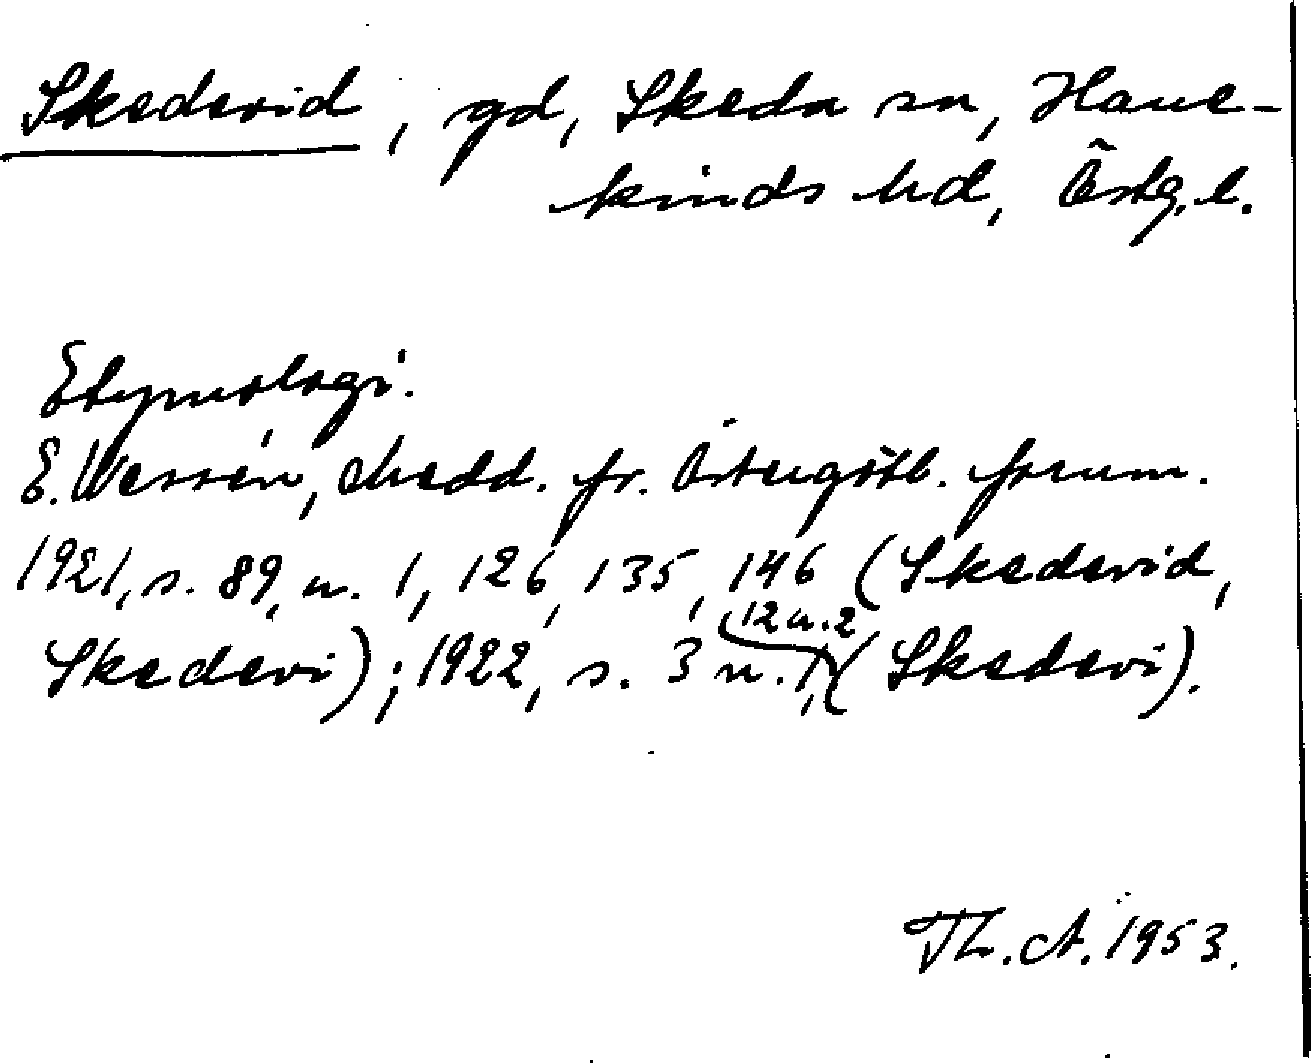 Skedevid, gd, Skeda sn, Hane-
kinds hd, Östg.l.
Etymologi.
E. Wessén, Medd. fr. Östergötl. fornm.
1921, s. 89, n. 1, 126, 135, 146 (Skedevid,
Skedevi); 1922, s. 3 n. 1, 12 n. 2 (Skedevi).
Th. A. 1953.